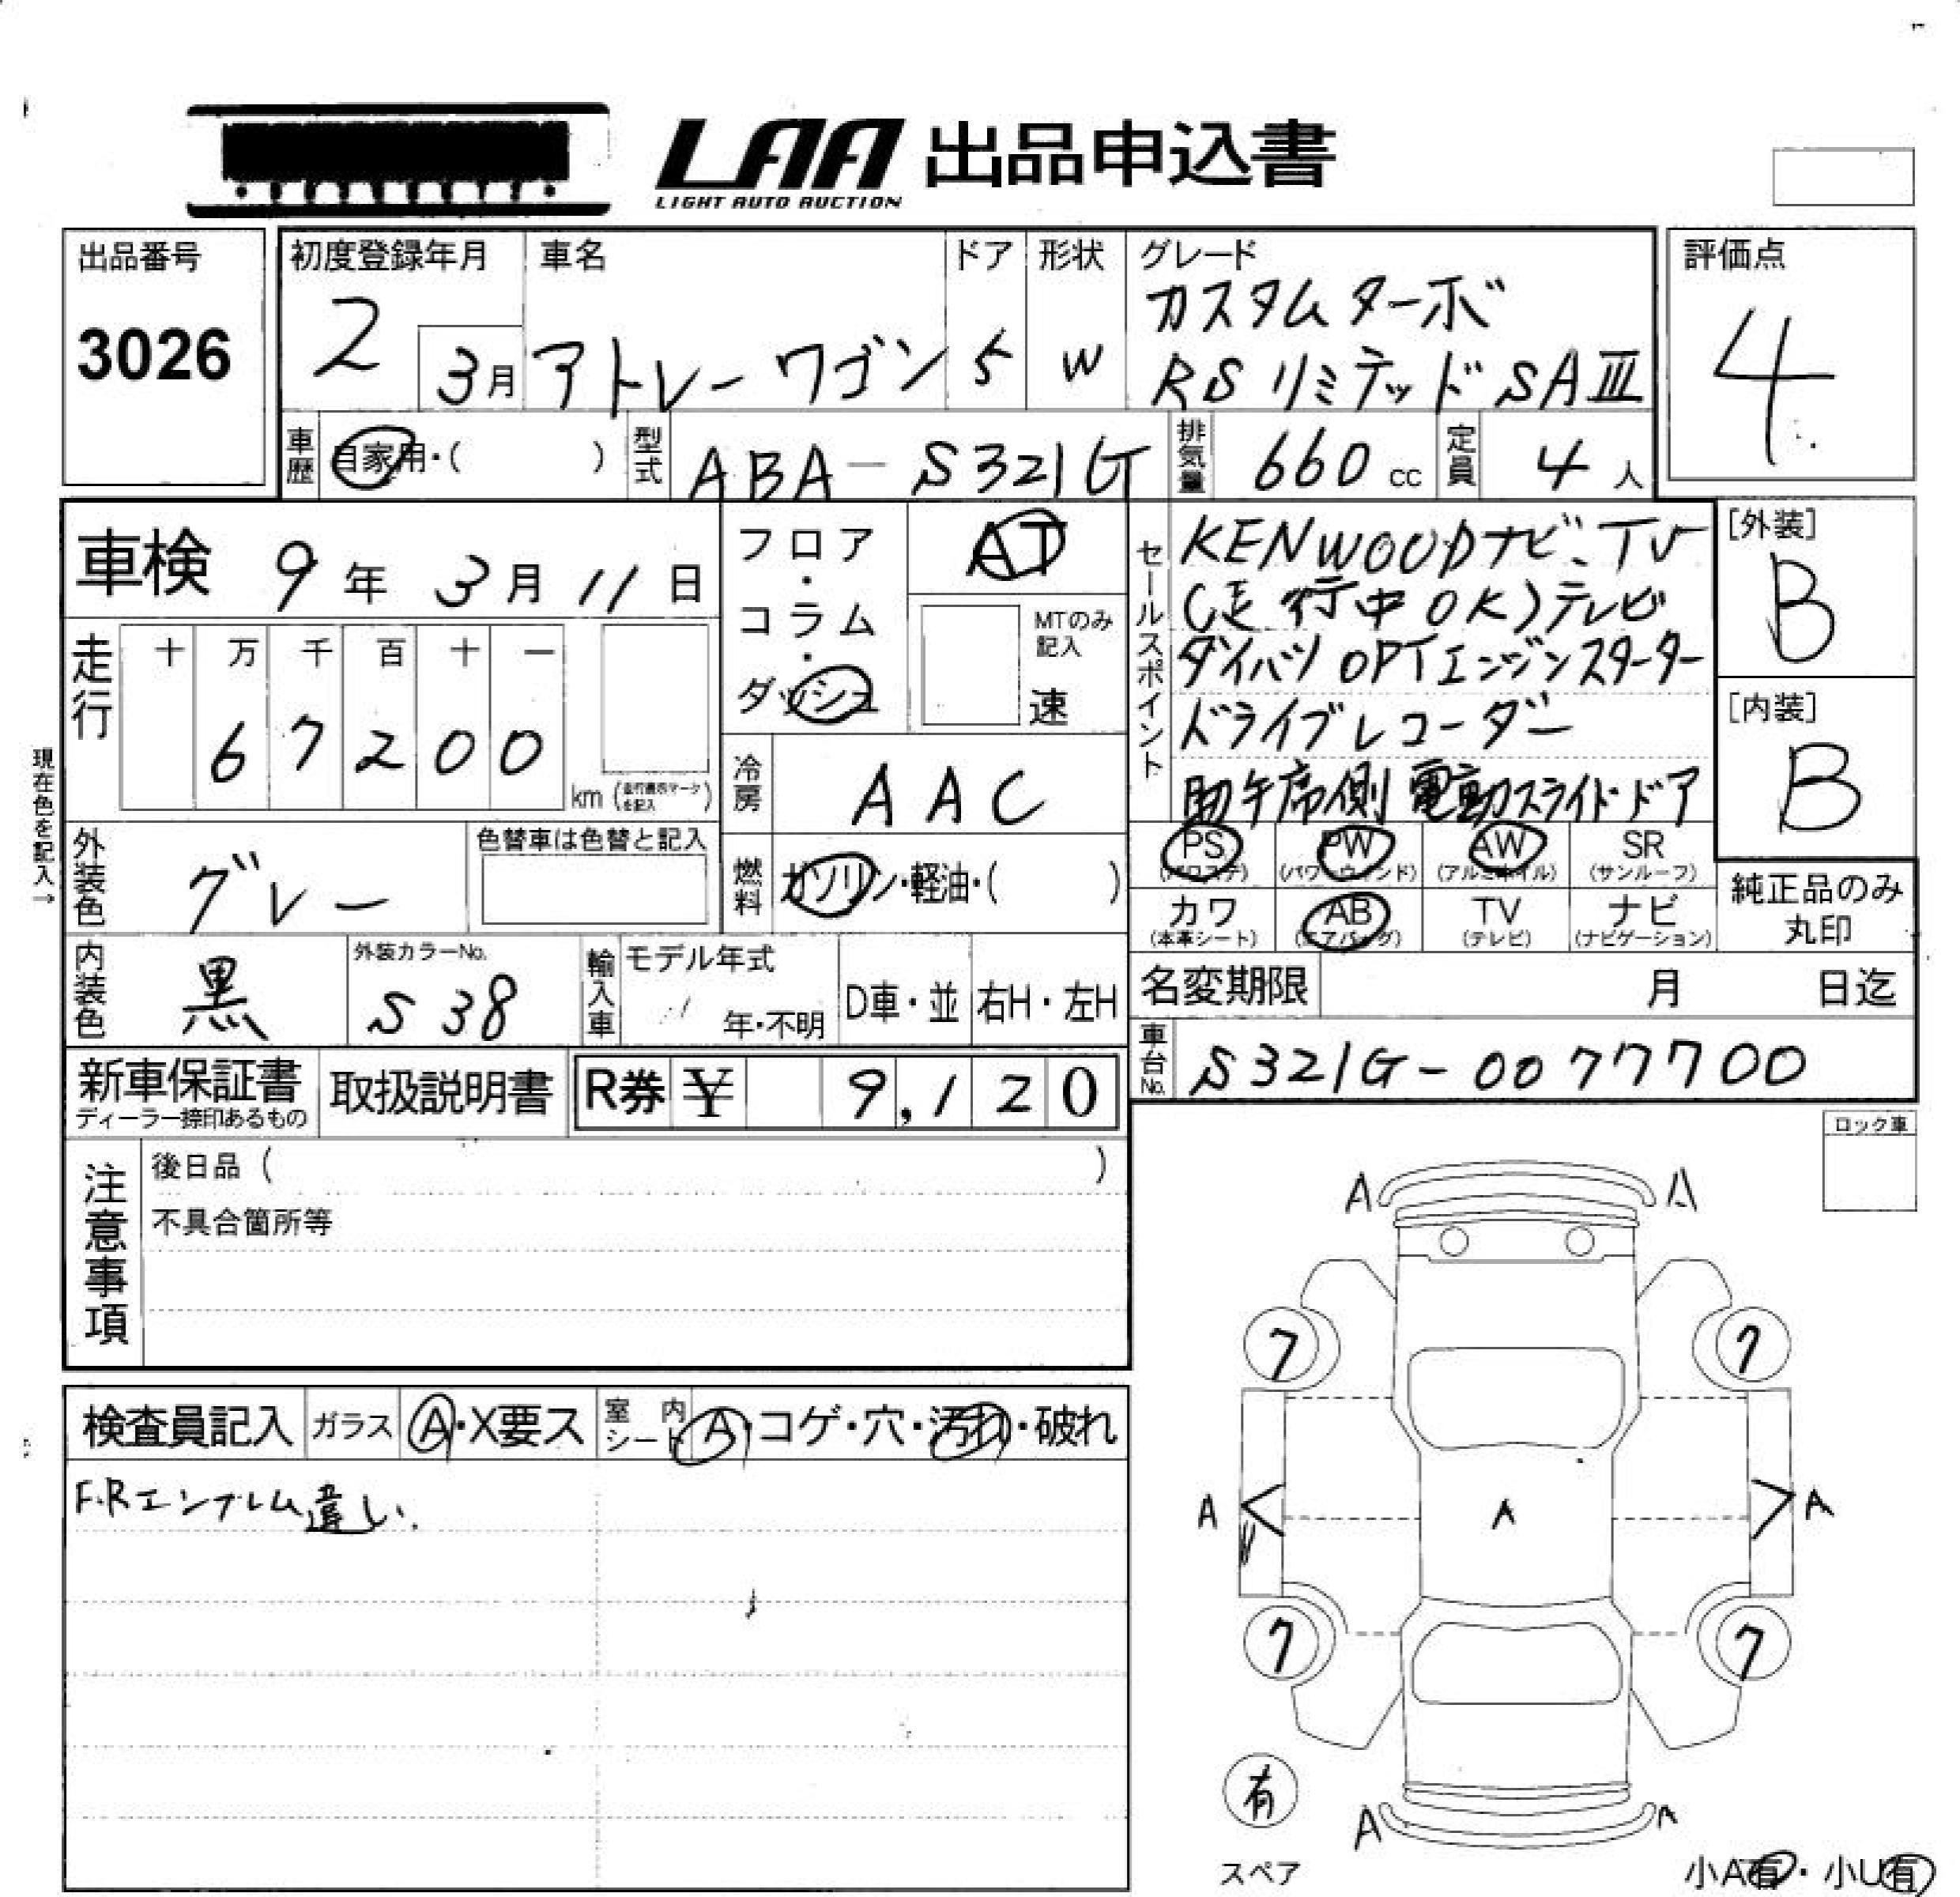 LAA 出品申込書
LIGHT AUTO AUCTION
出品番号
3026
初度登録年月
2
3月
車名
アトレーワゴン
ドア
5
形状
W
グレード
カスタムターボ
RSリミテッドSAⅢ
評価点
4
車歴
自家用・( )
型式
ABA-S321G
排気量
660 cc
定員
4 人
車検 9年 3月 11日
走行
十 万 千 百 十 一
6 7 2 0 0
km (走行表示マークを記入)
現在色を記入→
フロア・コラム・ダッシュ
AT
MTのみ記入
速
冷房
AAC
燃料
ガソリン・軽油・( )
セールスポイント
KENWOODナビ、TV
(走行中OK)テレビ
ダイハツOPTエンジンスターター
ドライブレコーダー
助手席側電動スライドドア
[外装]
B
[内装]
B
PS
(パワステ)
PW
(パワーウィンド)
AW
(アルミホイル)
SR
(サンルーフ)
カワ
(本革シート)
AB
(エアバッグ)
TV
(テレビ)
ナビ
(ナビゲーション)
純正品のみ
丸印
外装色
グレー
色替車は色替と記入
内装色
黒
外装カラーNo.
S38
輸入車
モデル年式
年・不明
D車・並
右H・左H
名変期限 月 日迄
車台No.
S321G-0077700
新車保証書
ディーラー捺印あるもの
取扱説明書
R券 ¥ 9,120
注意事項
後日品 ( )
不具合箇所等
ロック車
検査員記入
ガラス
A・X要ス
室内シート
A・コゲ・穴・汚れ・破れ
F.Rエンブレム違い.
A A
7 7
A A A
7 7
有
スペア
A A
小A有・小U有